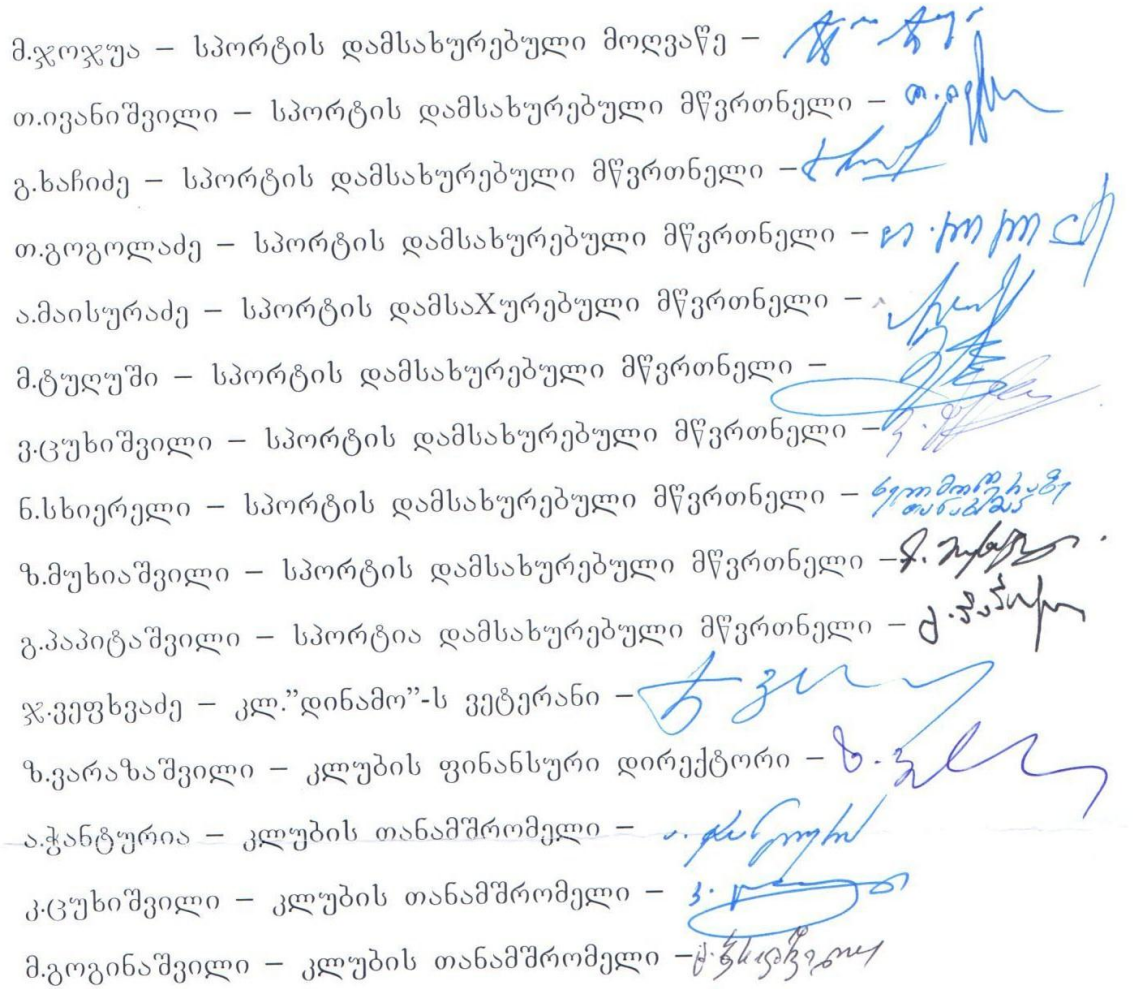 მ.ჯოჯუა – სპორტის დამსახურებული მოღვაწე –
თ.ივანიშვილი – სპორტის დამსახურებული მწვრთნელი –
გ.ხაჩიძე – სპორტის დამსახურებული მწვრთნელი –
თ.გოგოლაძე – სპორტის დამსახურებული მწვრთნელი –
ა.მაისურაძე – სპორტის დამსაXურებული მწვრთნელი –
მ.ტუღუში – სპორტის დამსახურებული მწვრთნელი –
ვ.ცუხიშვილი – სპორტის დამსახურებული მწვრთნელი –
ნ.სხიერელი – სპორტის დამსახურებული მწვრთნელი –
ზ.მუხიაშვილი – სპორტის დამსახურებული მწვრთნელი –
გ.პაპიტაშვილი – სპორტია დამსახურებული მწვრთნელი –
ჯ.ვეფხვაძე – კლ.”დინამო”-ს ვეტერანი –
ზ.ვარაზაშვილი – კლუბის ფინანსური დირექტორი –
ა.ჭანტურია – კლუბის თანამშრომელი –
კ.ცუხიშვილი – კლუბის თანამშრომელი –
მ.გოგინაშვილი – კლუბის თანამშრომელი –